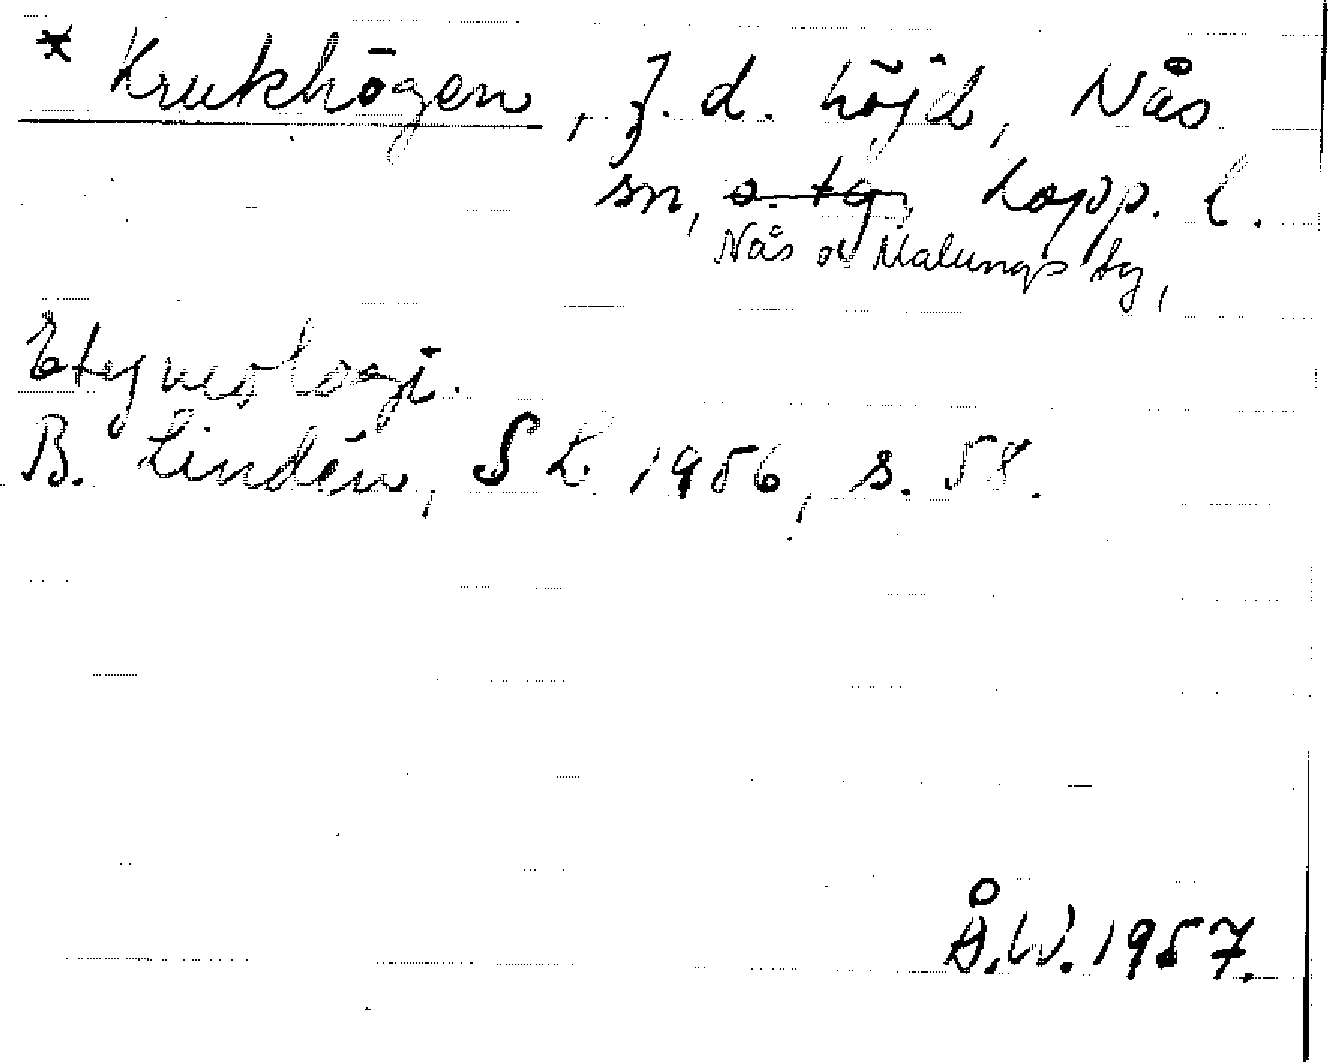 * Krukhögen, f. d. höjd, Nås
sn, o. tg, Kopp. l.
Nås o Malungs tg,
Etymologi.
B. Lindén, SL 1956, s. 58.
Å.W. 1957.